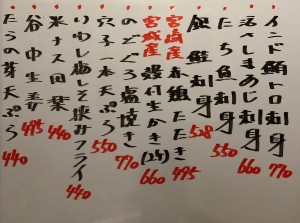 インド鮪トロ刺身 770
活〆しまあじ刺身 660
たち魚刺身 550
銀鮭刺身 528
宮崎産 赤鶏たたき 495
宮城産 殻付生かき(2ケ) 660
のどぐろ塩焼き 770
穴子一本天ぷら 550
いわし梅しそ挟みフライ 440
米ナス田楽 440
谷中生姜 495
たらの芽天ぷら 440